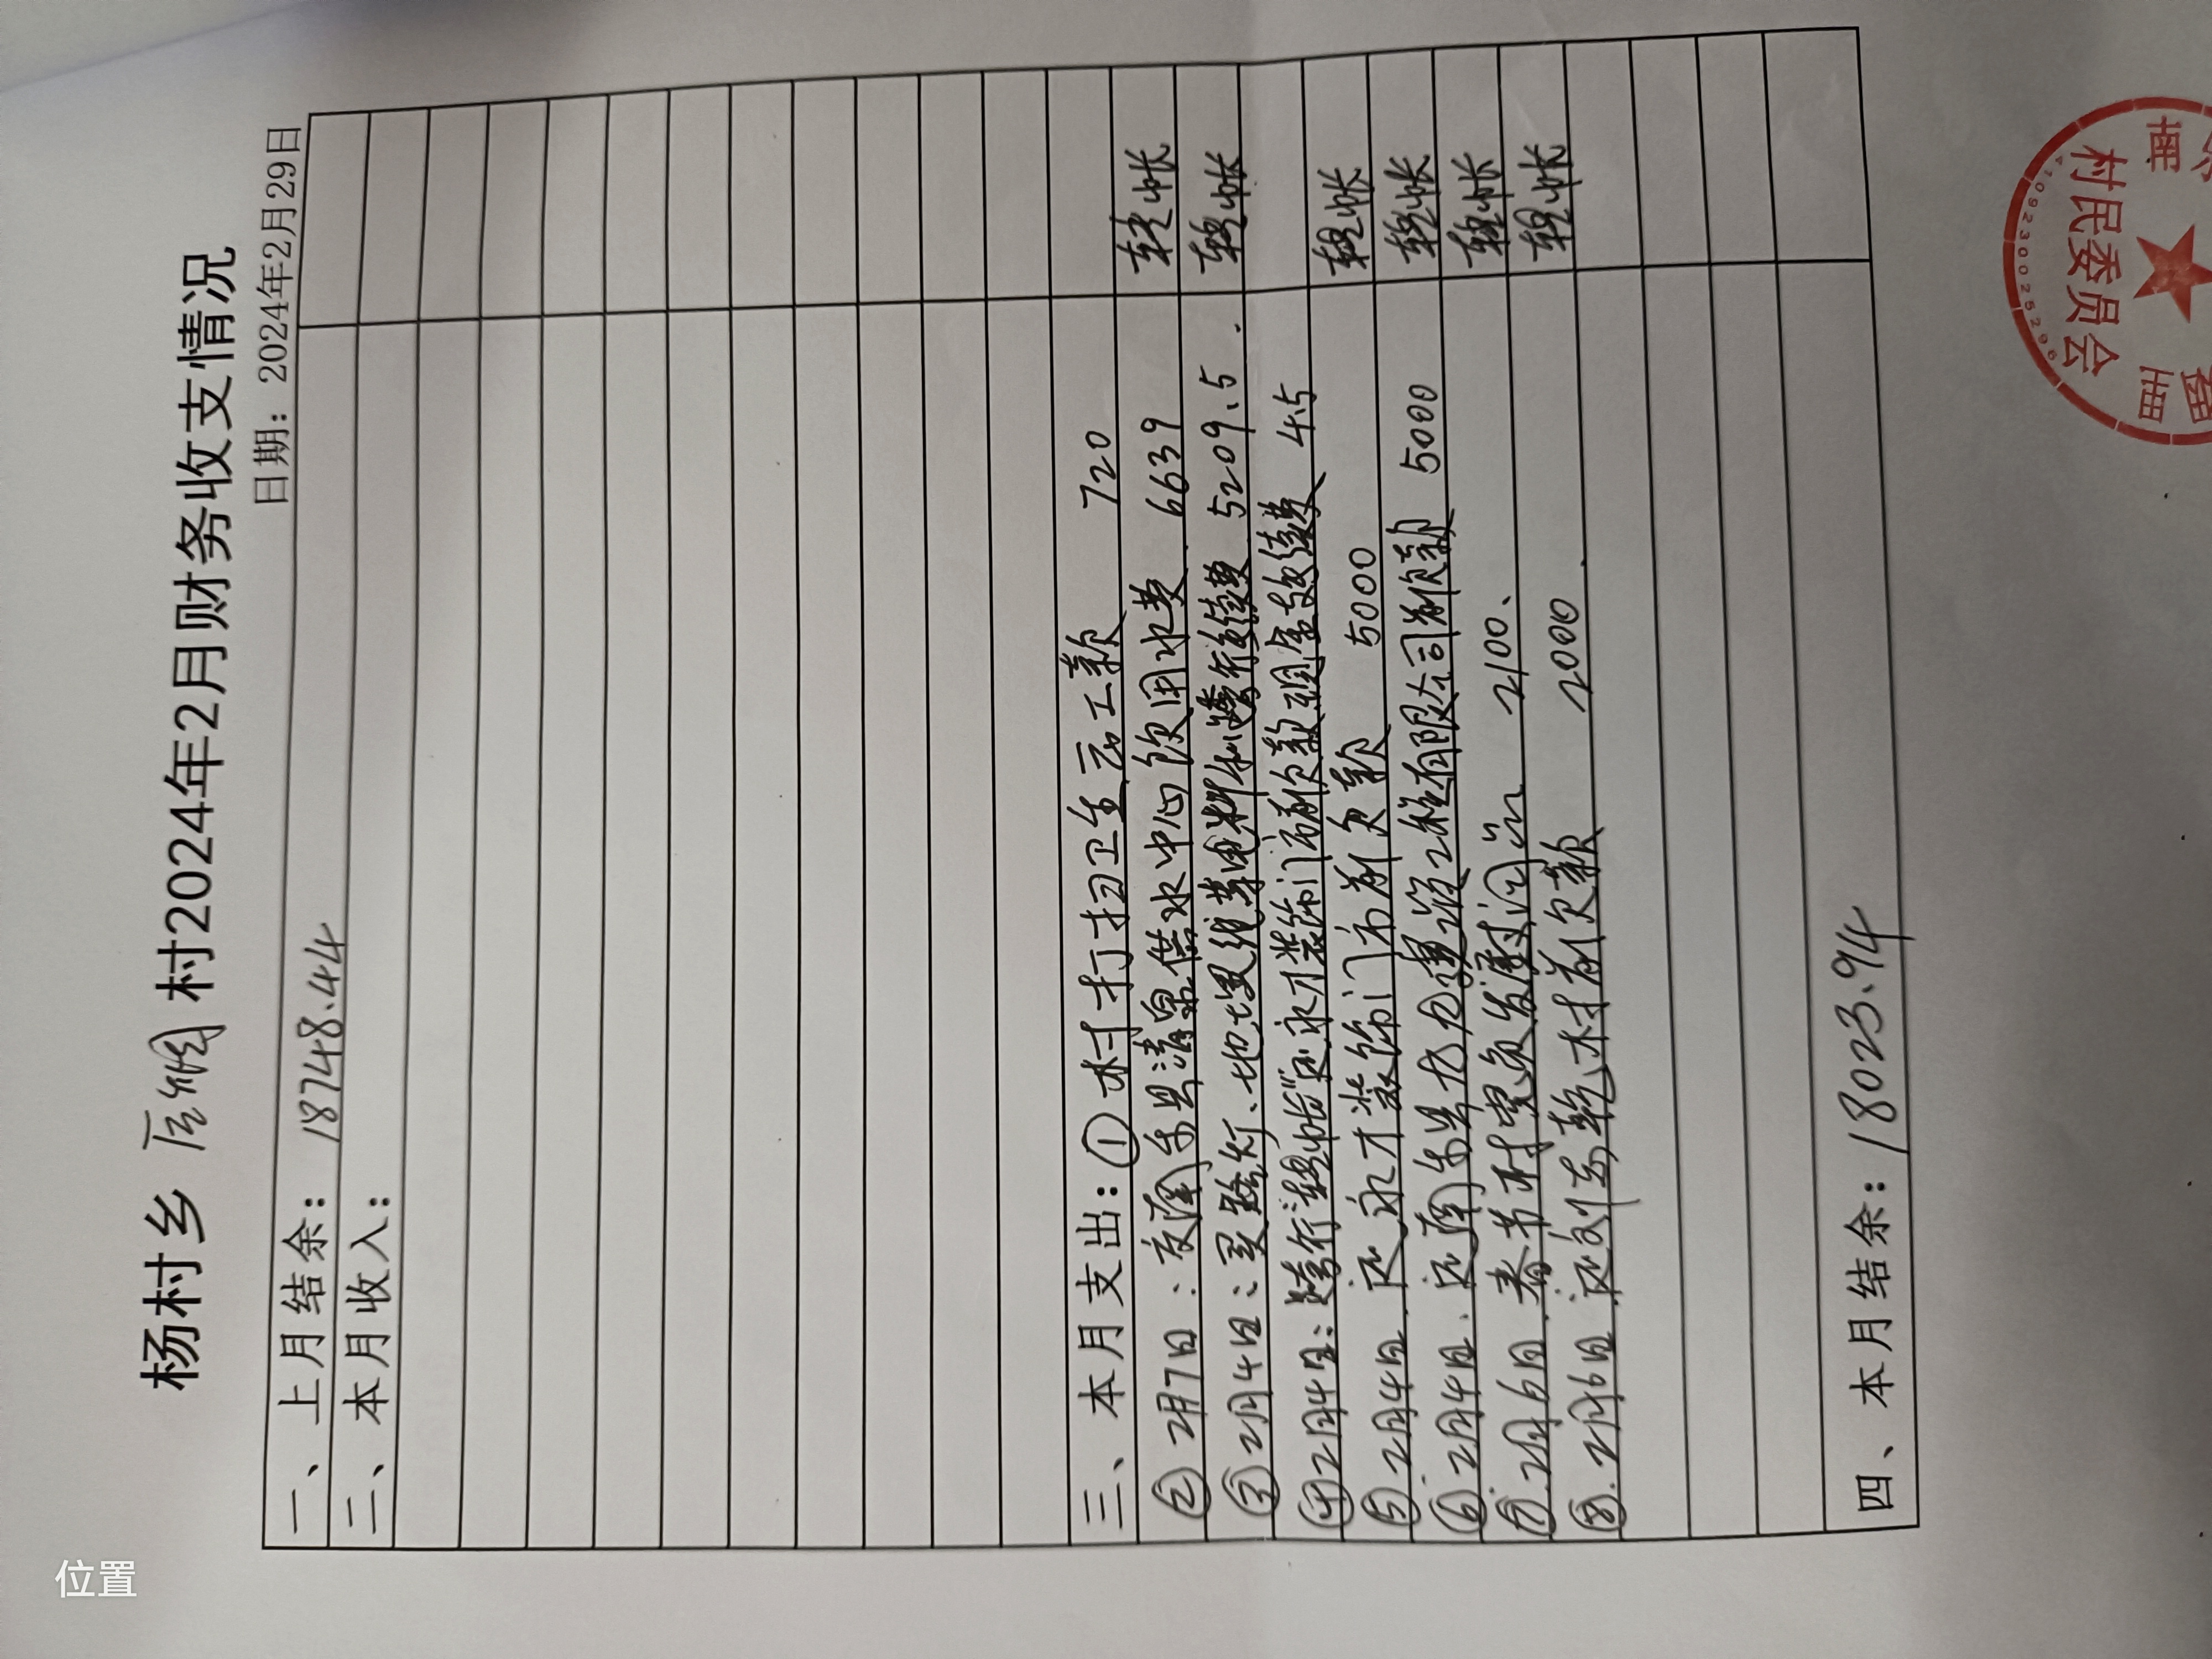 位置
杨村乡 后烟 村2024年2月财务收支情况
日期：2024年2月29日
一、上月结余：18748.44
二、本月收入：
三、本月支出：① 村打扫卫生云工款 720
② 2月7日：交南乐县清泉供水中心饮用水费 6639 转帐
③ 2月4日：买路灯、地埋线等电料和跨行手续费 5209.5 转帐
④ 2月4日：跨行"转帐"还永才装饰门市前欠款现金手续费 4.5
⑤ 2月4日 还永才装饰门市前欠款 5000 转帐
⑥ 2月4日 还南乐县 建设工程有限公司前欠款 5000 转帐
⑦ 2月6日 春节村党员发慰问品 2100 转帐
⑧ 2月6日 还刘志乾村前欠款 2000 转帐
四、本月结余：18023.94
4109230025296
村民委员会